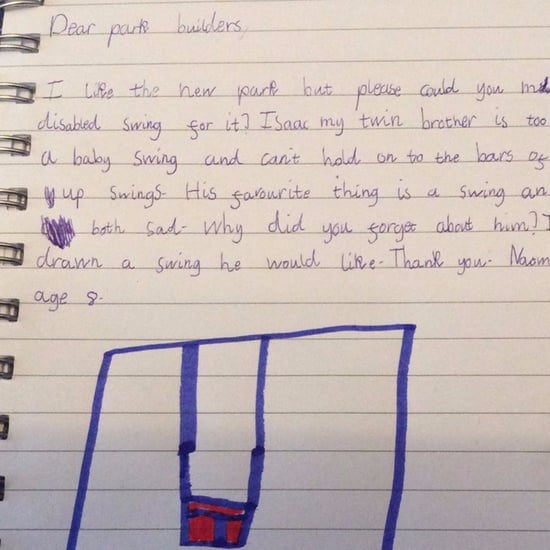 Dear park builders,
I like the new park but please could you
disabled swing for it? Isaac my twin brother is too
a baby swing and can't hold on to the bars of
up swings. His favourite thing is a swing an
both sad. Why did you forget about him? I
drawn a swing he would like. Thank you. Naom
age 8.